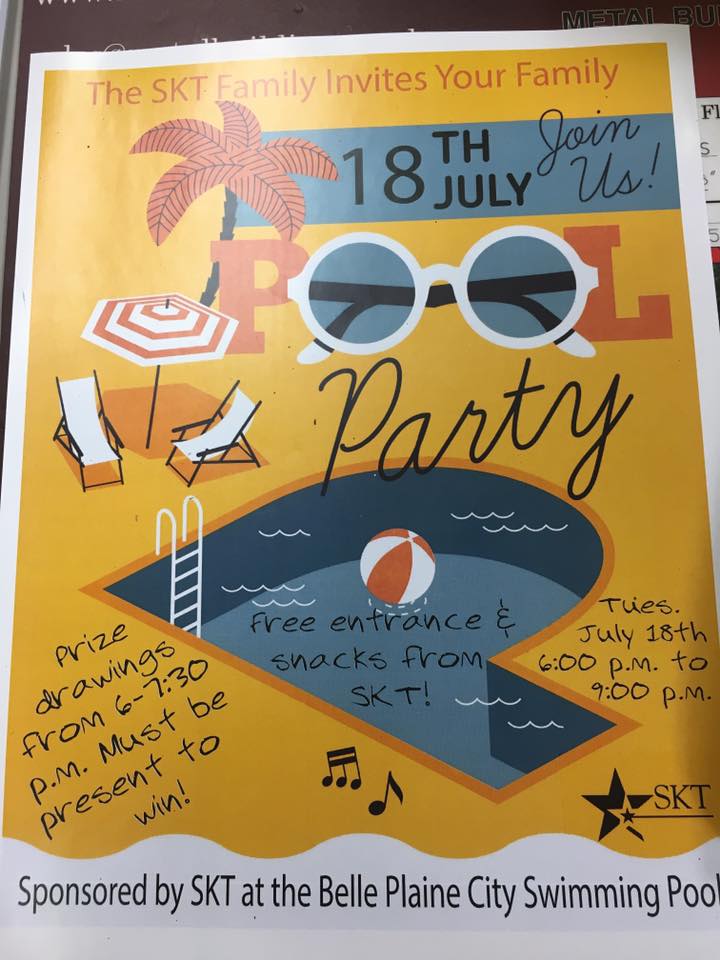 METAL BU
The SKT Family Invites Your Family
18TH JULY
Join
Us!
POOL
Party
free entrance &
snacks from
SKT!
Tues.
July 18th
6:00 p.m. to
9:00 p.m.
prize
drawings
from 6-7:30
p.m. Must be
present to
win!
SKT
Sponsored by SKT at the Belle Plaine City Swimming Pool